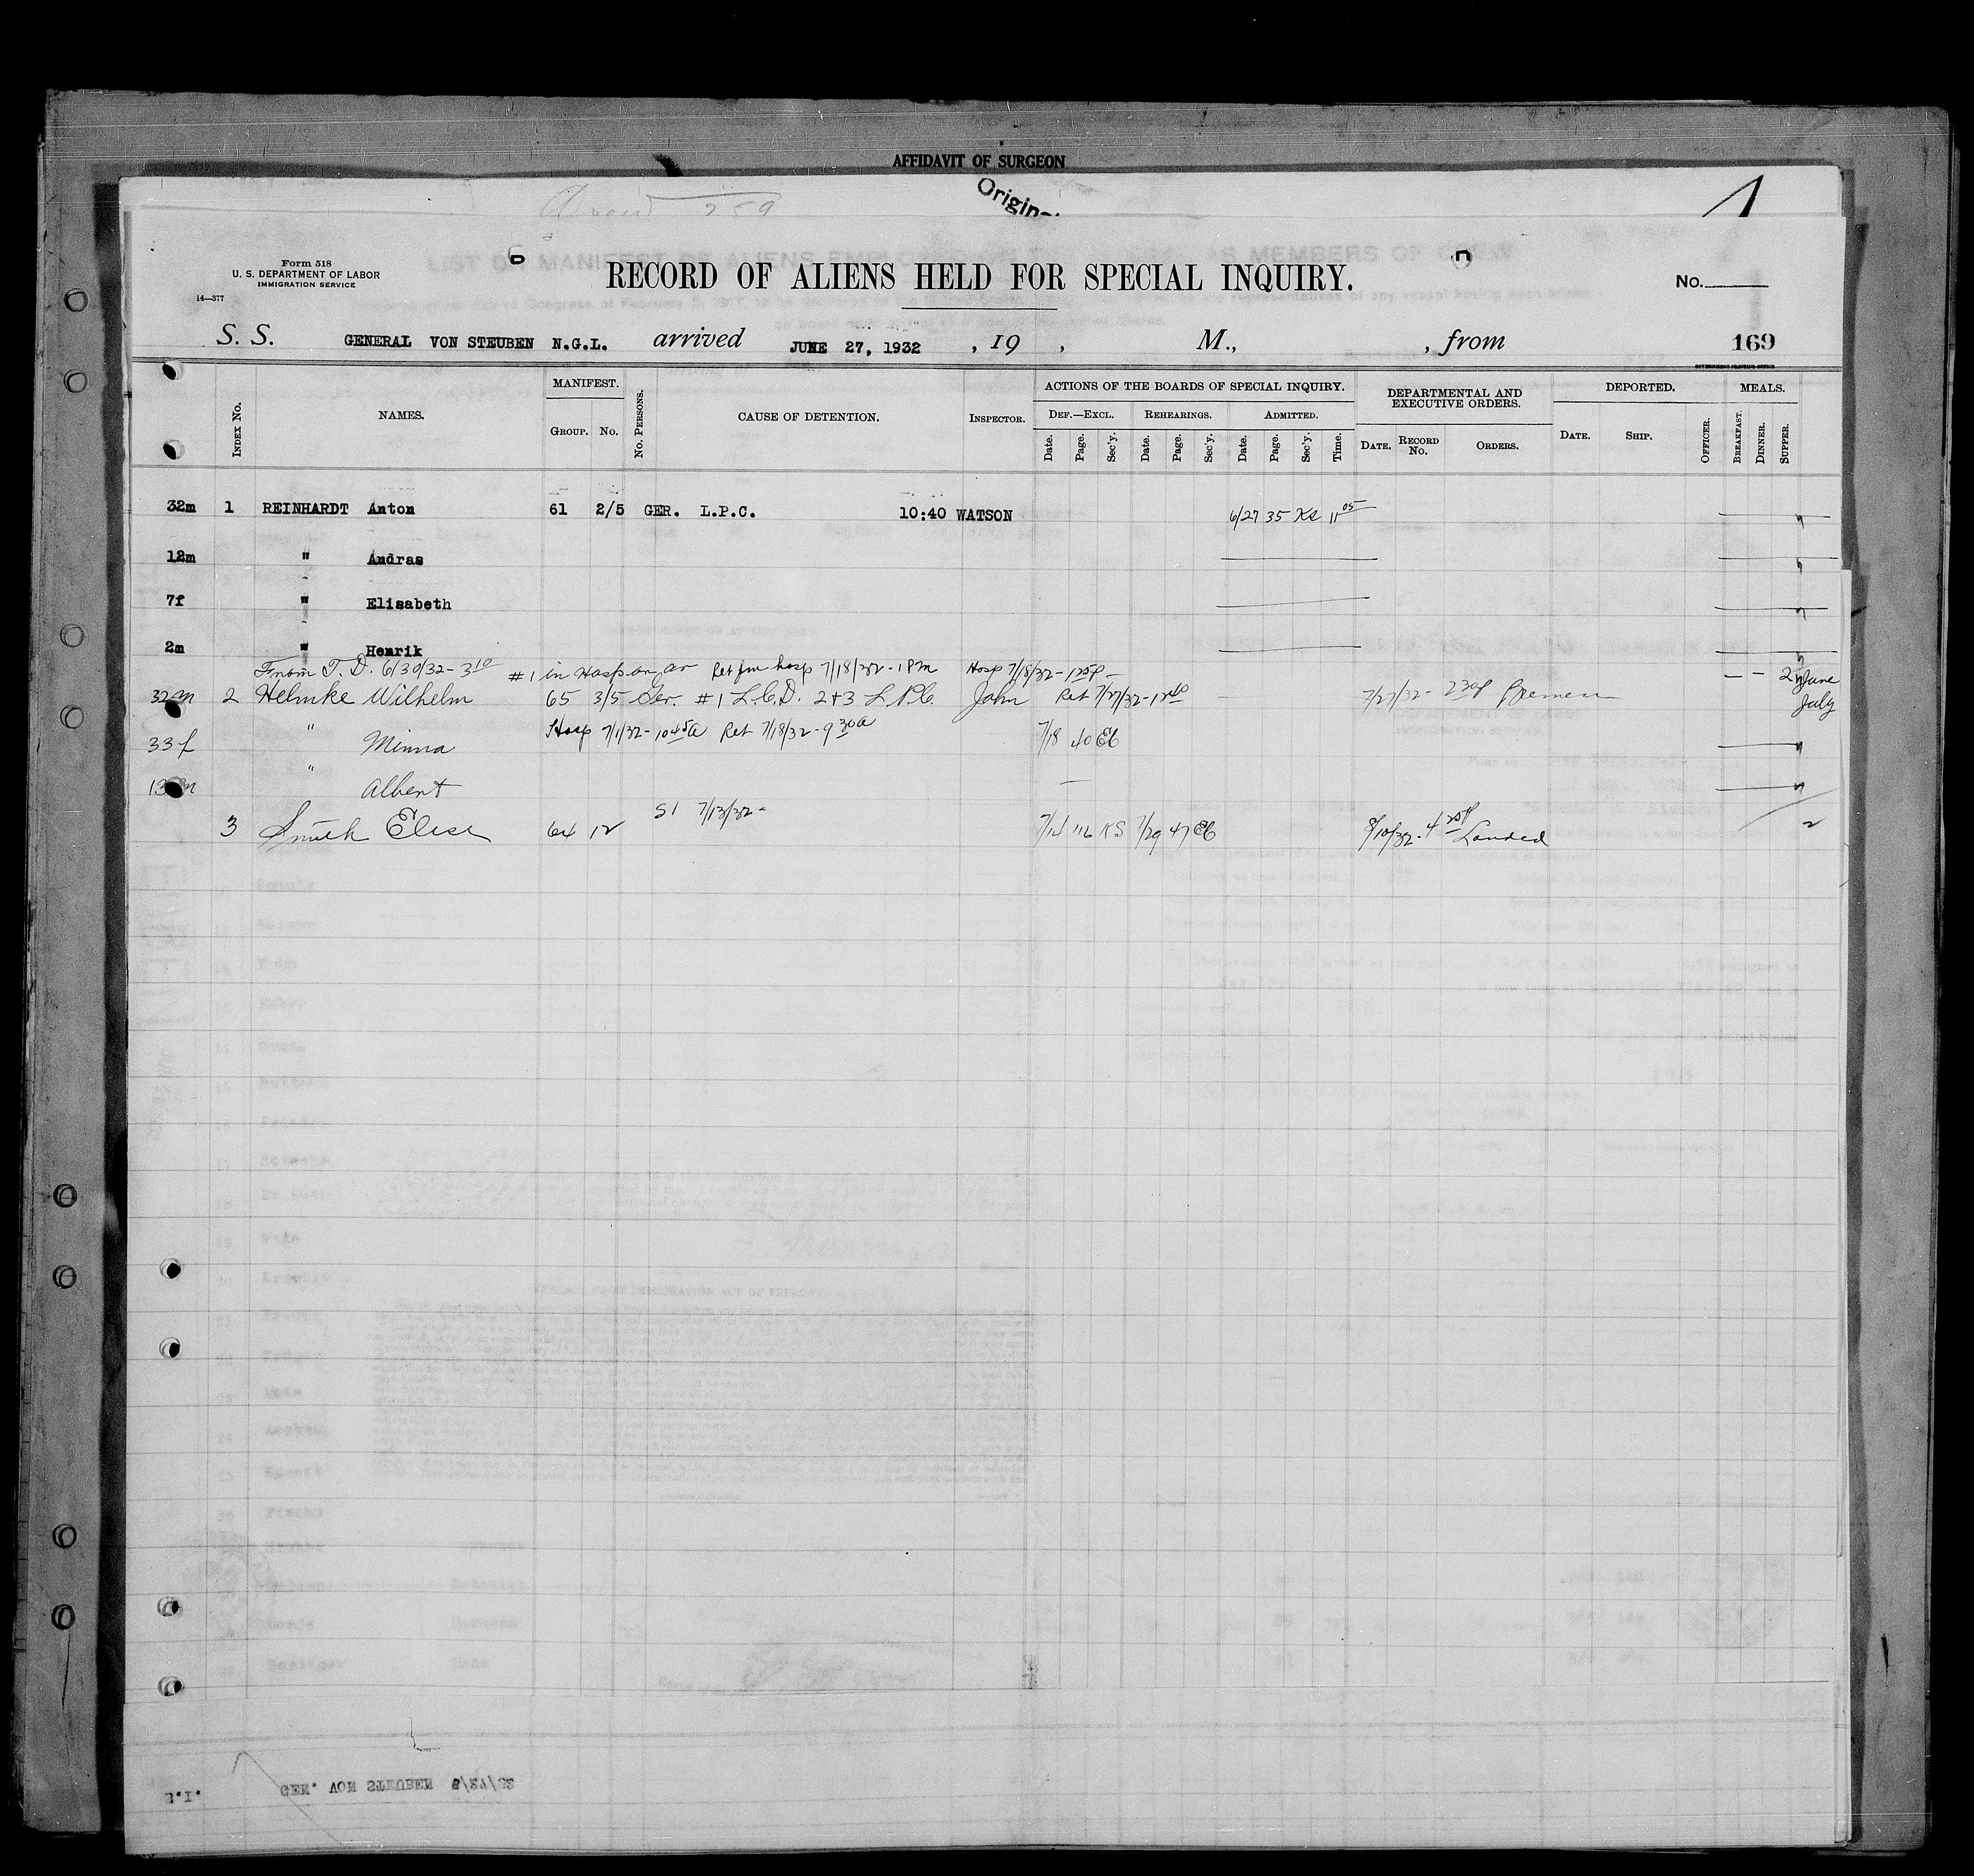 AFFIDAVIT OF SURGEON
Original
1
Form 518
U. S. DEPARTMENT OF LABOR
IMMIGRATION SERVICE
14—377
RECORD OF ALIENS HELD FOR SPECIAL INQUIRY.
No.
S. S. GENERAL VON STEUBEN N.G.L. arrived JUNE 27, 1932 , 19 , M., , from 169
GOVERNMENT PRINTING OFFICE
INDEX NO. NAMES. MANIFEST. GROUP. NO. NO. PERSONS. CAUSE OF DETENTION. INSPECTOR. ACTIONS OF THE BOARDS OF SPECIAL INQUIRY. DEPARTMENTAL AND EXECUTIVE ORDERS. DEPORTED. MEALS.
DEF.—EXCL. REHEARINGS. ADMITTED.
Date. Page. Sec'y. Date. Page. Sec'y. Date. Page. Sec'y. Time. DATE. RECORD NO. ORDERS. DATE. SHIP. OFFICER. BREAKFAST. DINNER. SUPPER.
32m 1 REINHARDT Anton 61 2/5 GER. L.P.C. 10:40 WATSON 6/27 35 KS 11 05
12m " Andras
7f " Elisabeth
2m " Henrik
From T.D. 6/30/32 - 3 10 #1 in Hosp on ar Ret fm hosp 7/18/32 - 1 PM Hosp 7/18/32 - 1 25P -
32m 2 Helmke Wilhelm 65 3/5 Ger. #1 L.C.D. 2+3 L.P.C. John Ret 7/27/32 - 12 40 7/27/32 - 2 30P Bremen — — 2 June
July
Hosp 7/1/32 - 10 45A Ret 7/18/32 - 9 30A
33f " Minna 7/18 40 EB
13m " Albert —
SI 7/13/32 -
3 Smith Elise 64 12 7/14 116 KS 7/29 47 EB 8/10/32 - 4 25P Landed 2
S.I. GEN. VON STEUBEN 6/27/32